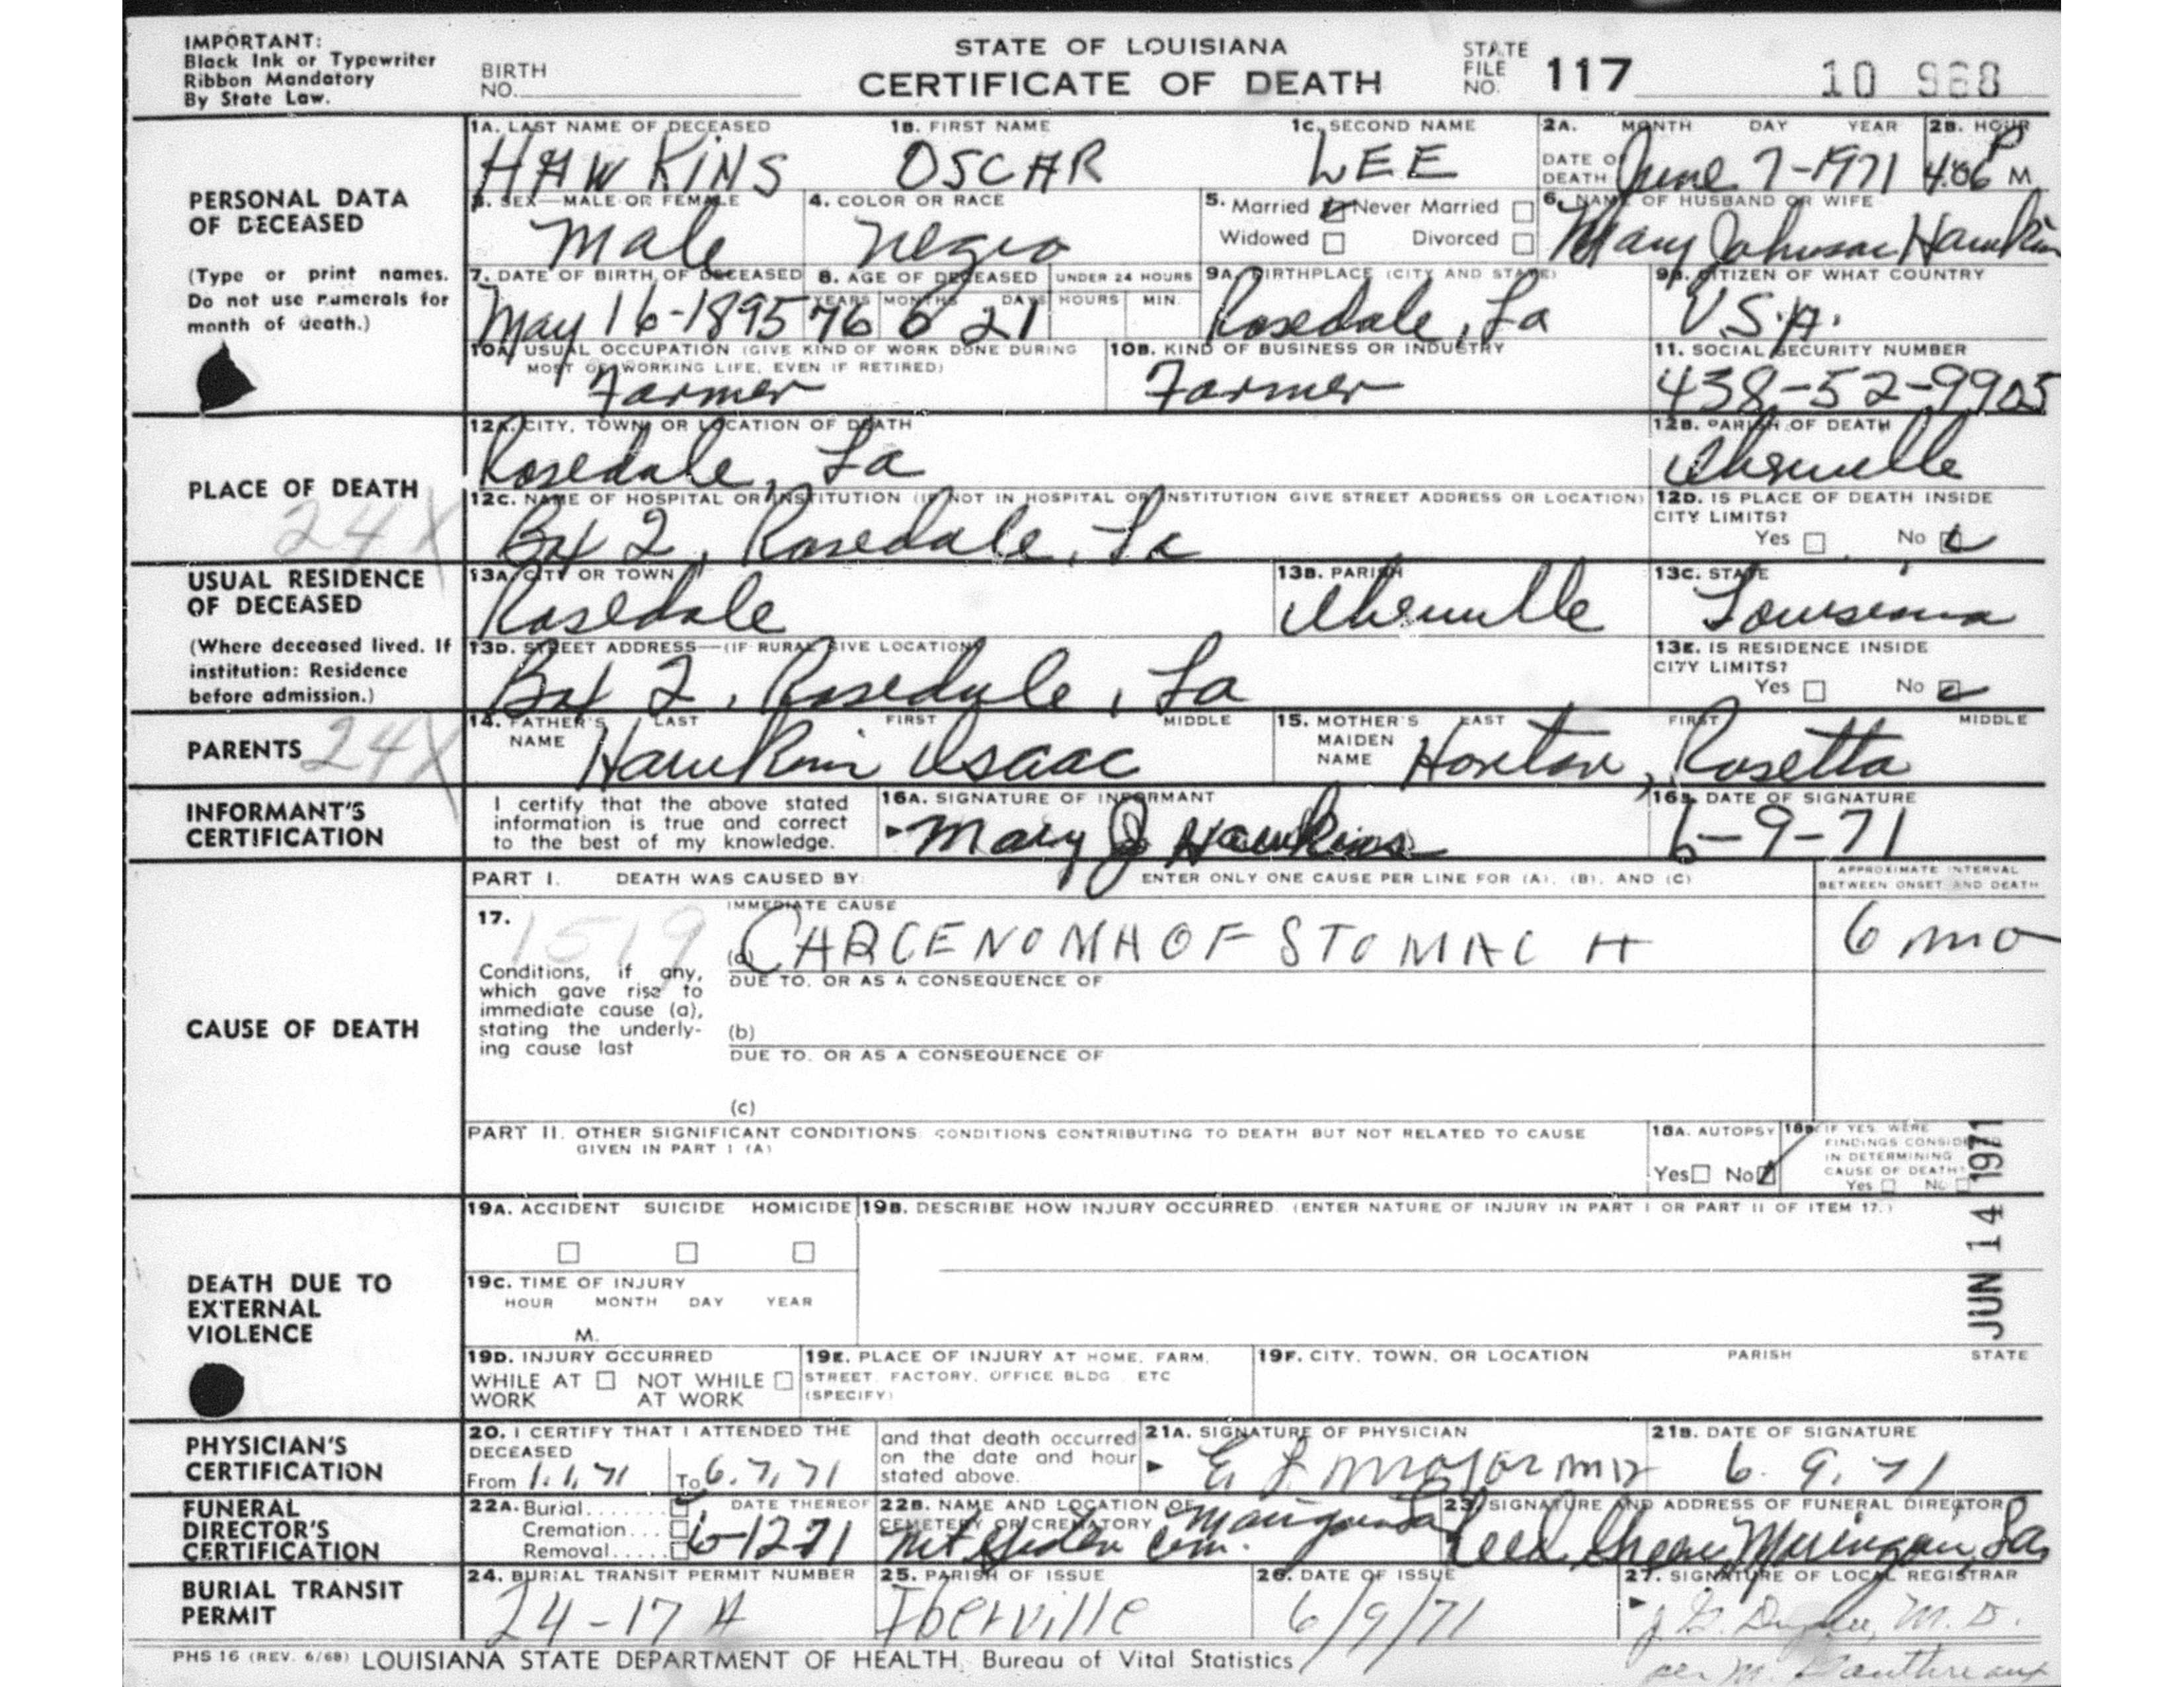 IMPORTANT:
Black Ink or Typewriter
Ribbon Mandatory
By State Law.
BIRTH
NO.
STATE OF LOUISIANA
CERTIFICATE OF DEATH
STATE
FILE
NO.
117
10 968
PERSONAL DATA
OF DECEASED
(Type or print names.
Do not use numerals for
month of death.)
1A. LAST NAME OF DECEASED 1B. FIRST NAME 1C. SECOND NAME
HAWKINS OSCAR LEE
2A. MONTH DAY YEAR
DATE OF
DEATH
June 7-1971
2B. HOUR
4:06 P M
3. SEX—MALE OR FEMALE
Male
4. COLOR OR RACE
Negro
5. Married Never Married
Widowed Divorced
6. NAME OF HUSBAND OR WIFE
Mary Johnson Hawkins
7. DATE OF BIRTH OF DECEASED
May 16-1895
8. AGE OF DECEASED UNDER 24 HOURS
YEARS MONTHS DAYS HOURS MIN.
76 21
9A. BIRTHPLACE (CITY AND STATE)
Rosedale, La
9B. CITIZEN OF WHAT COUNTRY
U.S.A.
10A. USUAL OCCUPATION (GIVE KIND OF WORK DONE DURING
MOST OF WORKING LIFE, EVEN IF RETIRED)
Farmer
10B. KIND OF BUSINESS OR INDUSTRY
Farmer
11. SOCIAL SECURITY NUMBER
438-52-9905
PLACE OF DEATH
24X
12A. CITY, TOWN, OR LOCATION OF DEATH
Rosedale, La
12B. PARISH OF DEATH
Iberville
12C. NAME OF HOSPITAL OR INSTITUTION (IF NOT IN HOSPITAL OR INSTITUTION GIVE STREET ADDRESS OR LOCATION)
Box 2, Rosedale, La
12D. IS PLACE OF DEATH INSIDE
CITY LIMITS?
Yes No
USUAL RESIDENCE
OF DECEASED
(Where deceased lived. If
institution: Residence
before admission.)
13A. CITY OR TOWN
Rosedale
13B. PARISH
Iberville
13C. STATE
Louisiana
13D. STREET ADDRESS—(IF RURAL GIVE LOCATION)
Box 2, Rosedale, La
13E. IS RESIDENCE INSIDE
CITY LIMITS?
Yes No
PARENTS
24X
14. FATHER'S LAST FIRST MIDDLE
NAME
Hawkins Isaac
15. MOTHER'S LAST FIRST MIDDLE
MAIDEN
NAME
Horton, Rosetta
INFORMANT'S
CERTIFICATION
I certify that the above stated
information is true and correct
to the best of my knowledge.
16A. SIGNATURE OF INFORMANT
Mary J Hawkins
16B. DATE OF SIGNATURE
6-9-71
CAUSE OF DEATH
PART I. DEATH WAS CAUSED BY: ENTER ONLY ONE CAUSE PER LINE FOR (A), (B), AND (C)
APPROXIMATE INTERVAL
BETWEEN ONSET AND DEATH
17.
1519
Conditions, if any,
which gave rise to
immediate cause (a),
stating the underly-
ing cause last
IMMEDIATE CAUSE
(a) CARCENOMA OF STOMACH
6 mo
DUE TO, OR AS A CONSEQUENCE OF
(b)
DUE TO, OR AS A CONSEQUENCE OF
(c)
PART II. OTHER SIGNIFICANT CONDITIONS: CONDITIONS CONTRIBUTING TO DEATH BUT NOT RELATED TO CAUSE
GIVEN IN PART I (A)
18A. AUTOPSY
Yes No
18B. IF YES, WERE
FINDINGS CONSIDERED
IN DETERMINING
CAUSE OF DEATH?
Yes No
JUN 14 1971
DEATH DUE TO
EXTERNAL
VIOLENCE
19A. ACCIDENT SUICIDE HOMICIDE
19B. DESCRIBE HOW INJURY OCCURRED. (ENTER NATURE OF INJURY IN PART I OR PART II OF ITEM 17.)
19C. TIME OF INJURY
HOUR MONTH DAY YEAR
M.
19D. INJURY OCCURRED
WHILE AT NOT WHILE
WORK AT WORK
19E. PLACE OF INJURY AT HOME, FARM,
STREET, FACTORY, OFFICE BLDG. ETC
(SPECIFY)
19F. CITY, TOWN, OR LOCATION PARISH STATE
PHYSICIAN'S
CERTIFICATION
20. I CERTIFY THAT I ATTENDED THE
DECEASED
From 1.1.71 To 6.7.71
and that death occurred
on the date and hour
stated above.
21A. SIGNATURE OF PHYSICIAN
E L Major MD
21B. DATE OF SIGNATURE
6.9.71
FUNERAL
DIRECTOR'S
CERTIFICATION
22A. Burial
Cremation
Removal
DATE THEREOF
6-12-71
22B. NAME AND LOCATION OF
CEMETERY OR CREMATORY
Cem.
23. SIGNATURE AND ADDRESS OF FUNERAL DIRECTOR
La.
BURIAL TRANSIT
PERMIT
24. BURIAL TRANSIT PERMIT NUMBER
24-17 A
25. PARISH OF ISSUE
Iberville
26. DATE OF ISSUE
6/9/71
27. SIGNATURE OF LOCAL REGISTRAR
M.D.
per M.
PHS 16 (REV. 6/68) LOUISIANA STATE DEPARTMENT OF HEALTH, Bureau of Vital Statistics